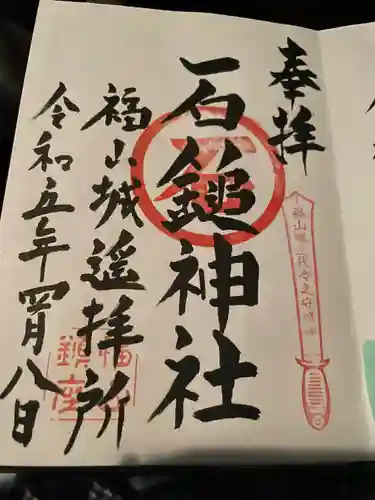 奉拝
石鎚神社
福山城遥拝所
令和五年四月八日
石
福山鎮座